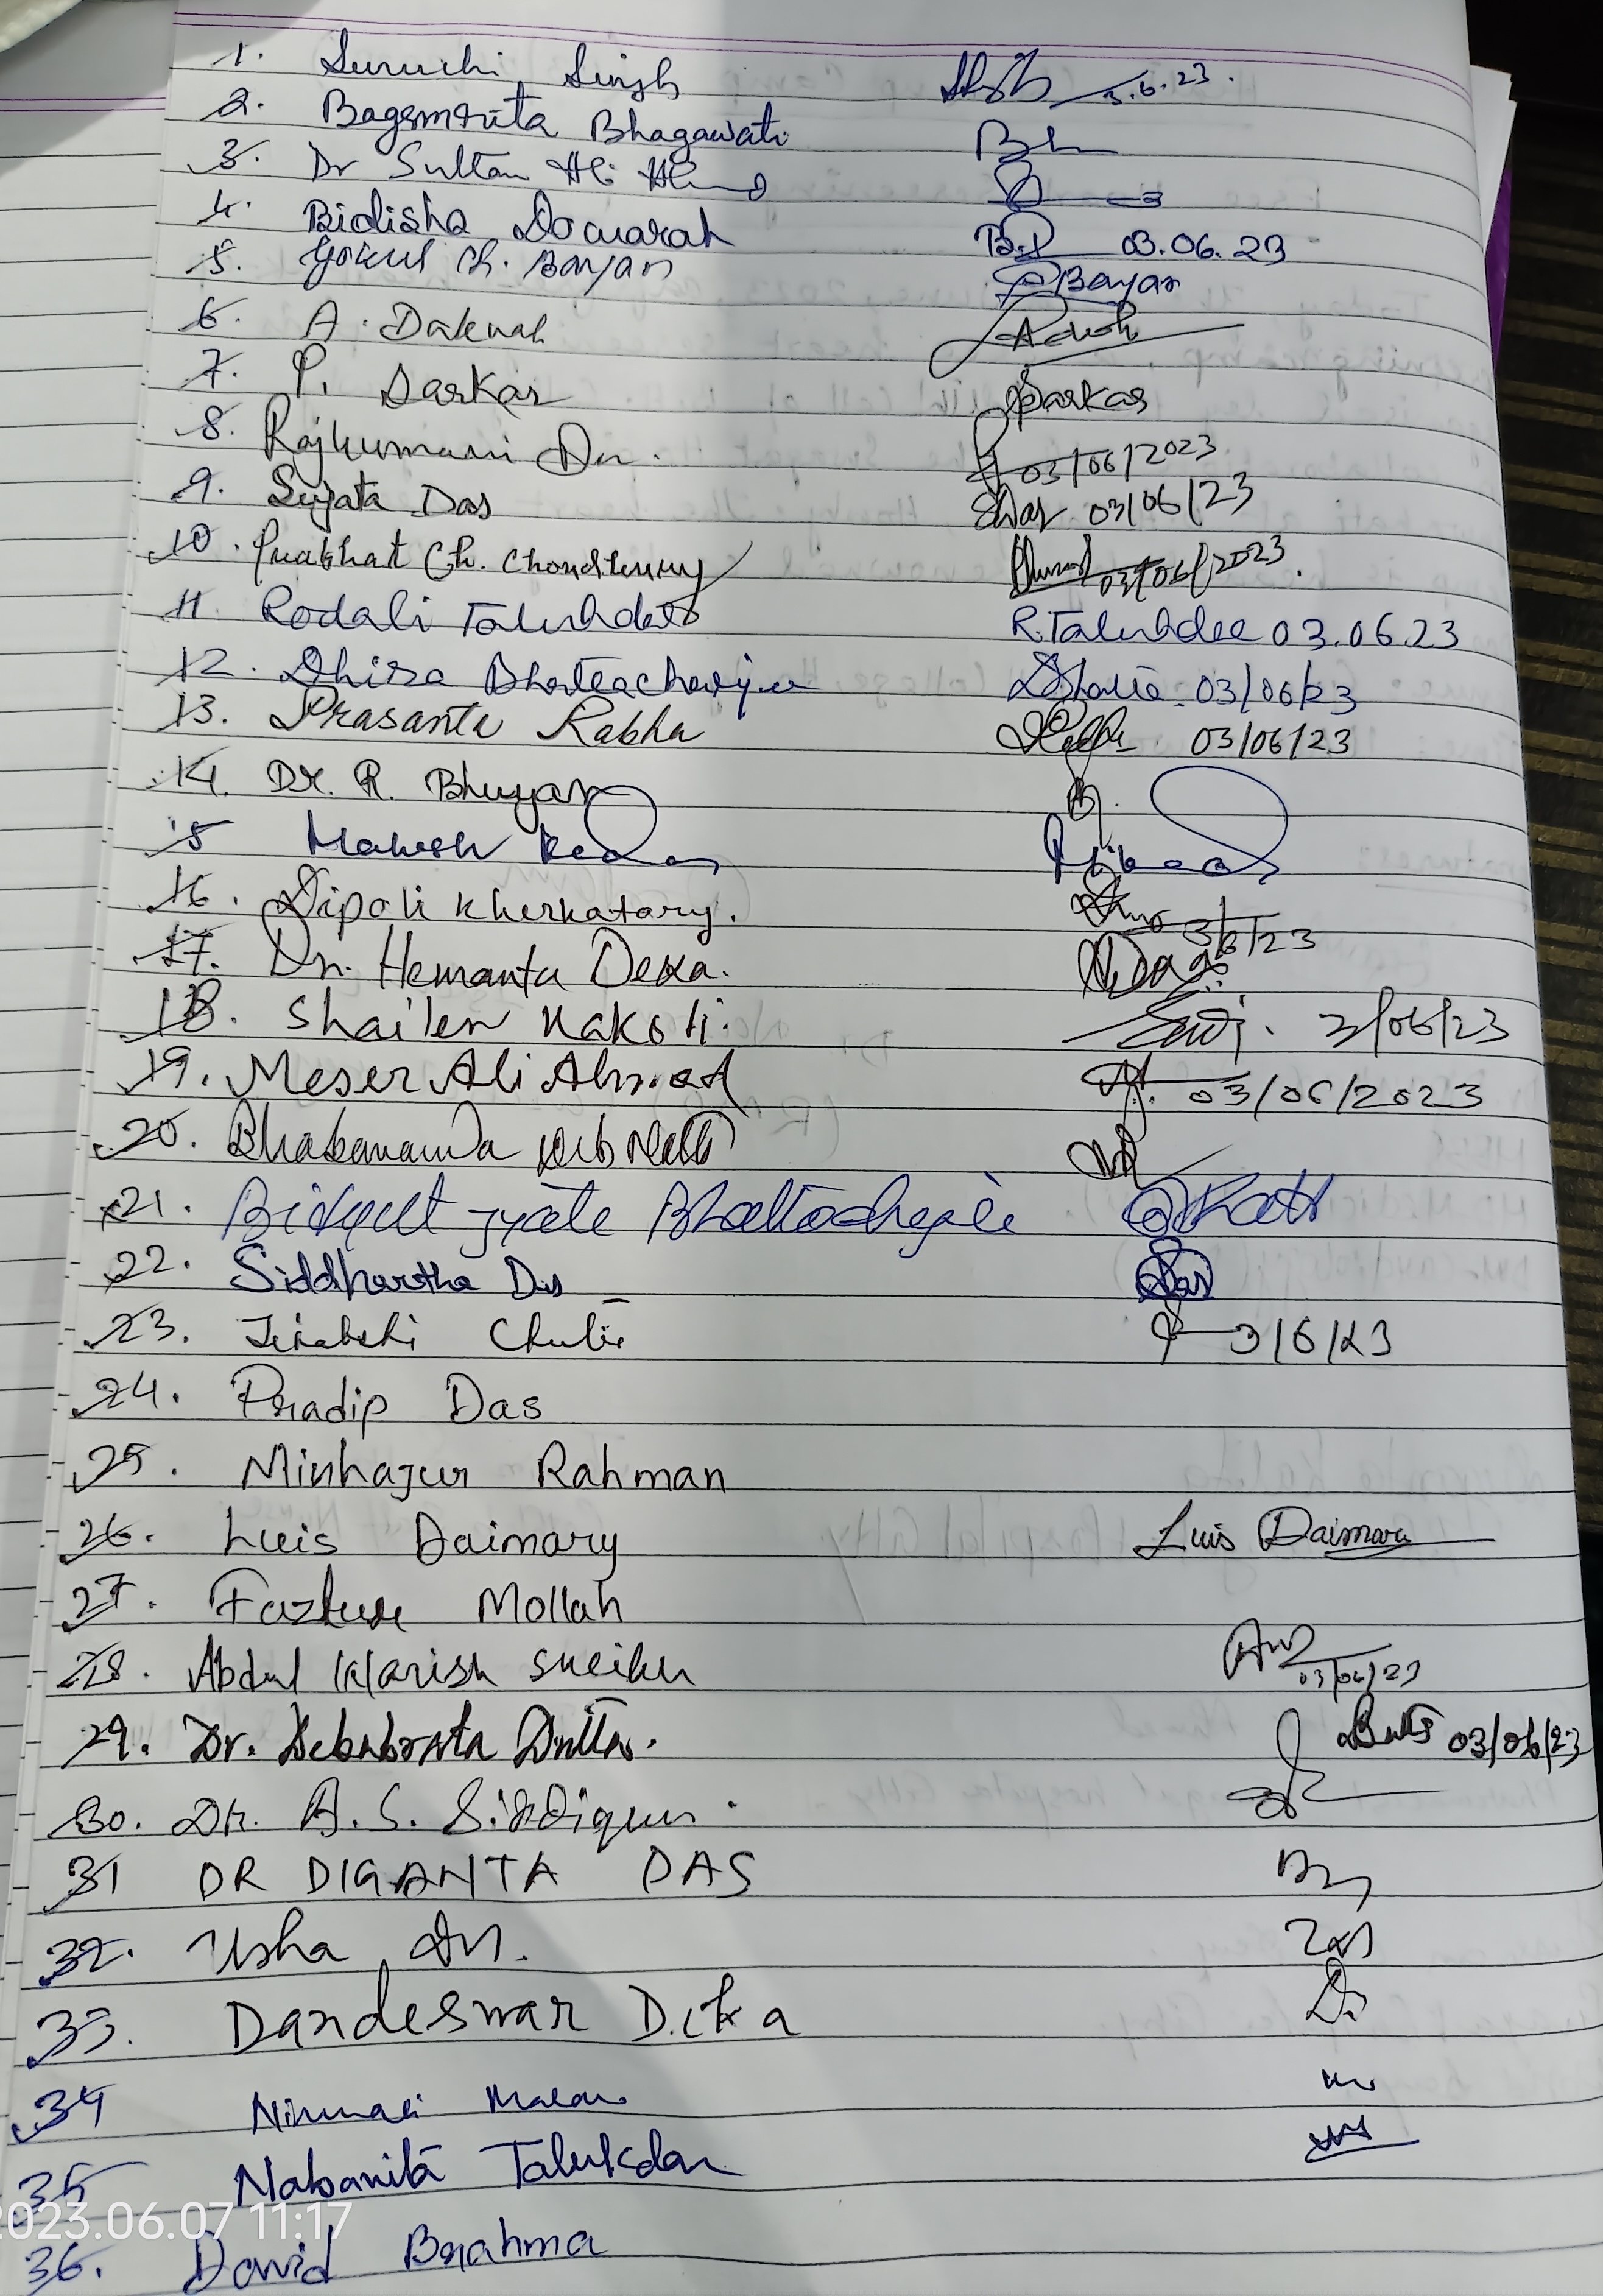 1. Suruchi Singh 3.6.23.
2. Bagsmrita Bhagawati
3. Dr Sultan Ali Ahmed
4. Bidisha Dowarah B.D 03.06.23
5. Gokul Ch. Bayan Bayan
6. A. Dakuah
7. P. Sarkar Sarkar
8. Rajkumari Das. 03/06/2023
9. Sujata Das SDas 03/06/23
10. Prabhat Ch. Choudhury 03/06/2023.
11. Rodali Talukdar R.Talukdar 03.06.23
12. Dhira Bhattacharjya 03/06/23
13. Prasanta Rabha 03/06/23
14. Dr. R. Bhuyan
15 Mahesh
16. Dipali Kherkatary. 3/6/23
17. Dr. Hemanta Deka.
18. Shailen Kakoti. 3/06/23
19. Meser Ali Ahmed 03/06/2023
20. Bhabananda Deb Nath
21. Bidyut Jyoti Bhattacharjee
22. Siddhartha Das Das
23. 3/6/23
24. Pradip Das
25. Minhajur Rahman
26. Luis Daimary Luis Daimary
27. Mollah
28. Abdul 03/06/23
29. Dr. Debabrata Dutta. 03/06/23
30. Dr. A.S. Siddique.
31 DR DIGANTA DAS
32. Usha Das.
33. Dandeswar Deka
34 Nirmali
35 Nabanita Talukdar
2023.06.07 11:17
36. David Brahma